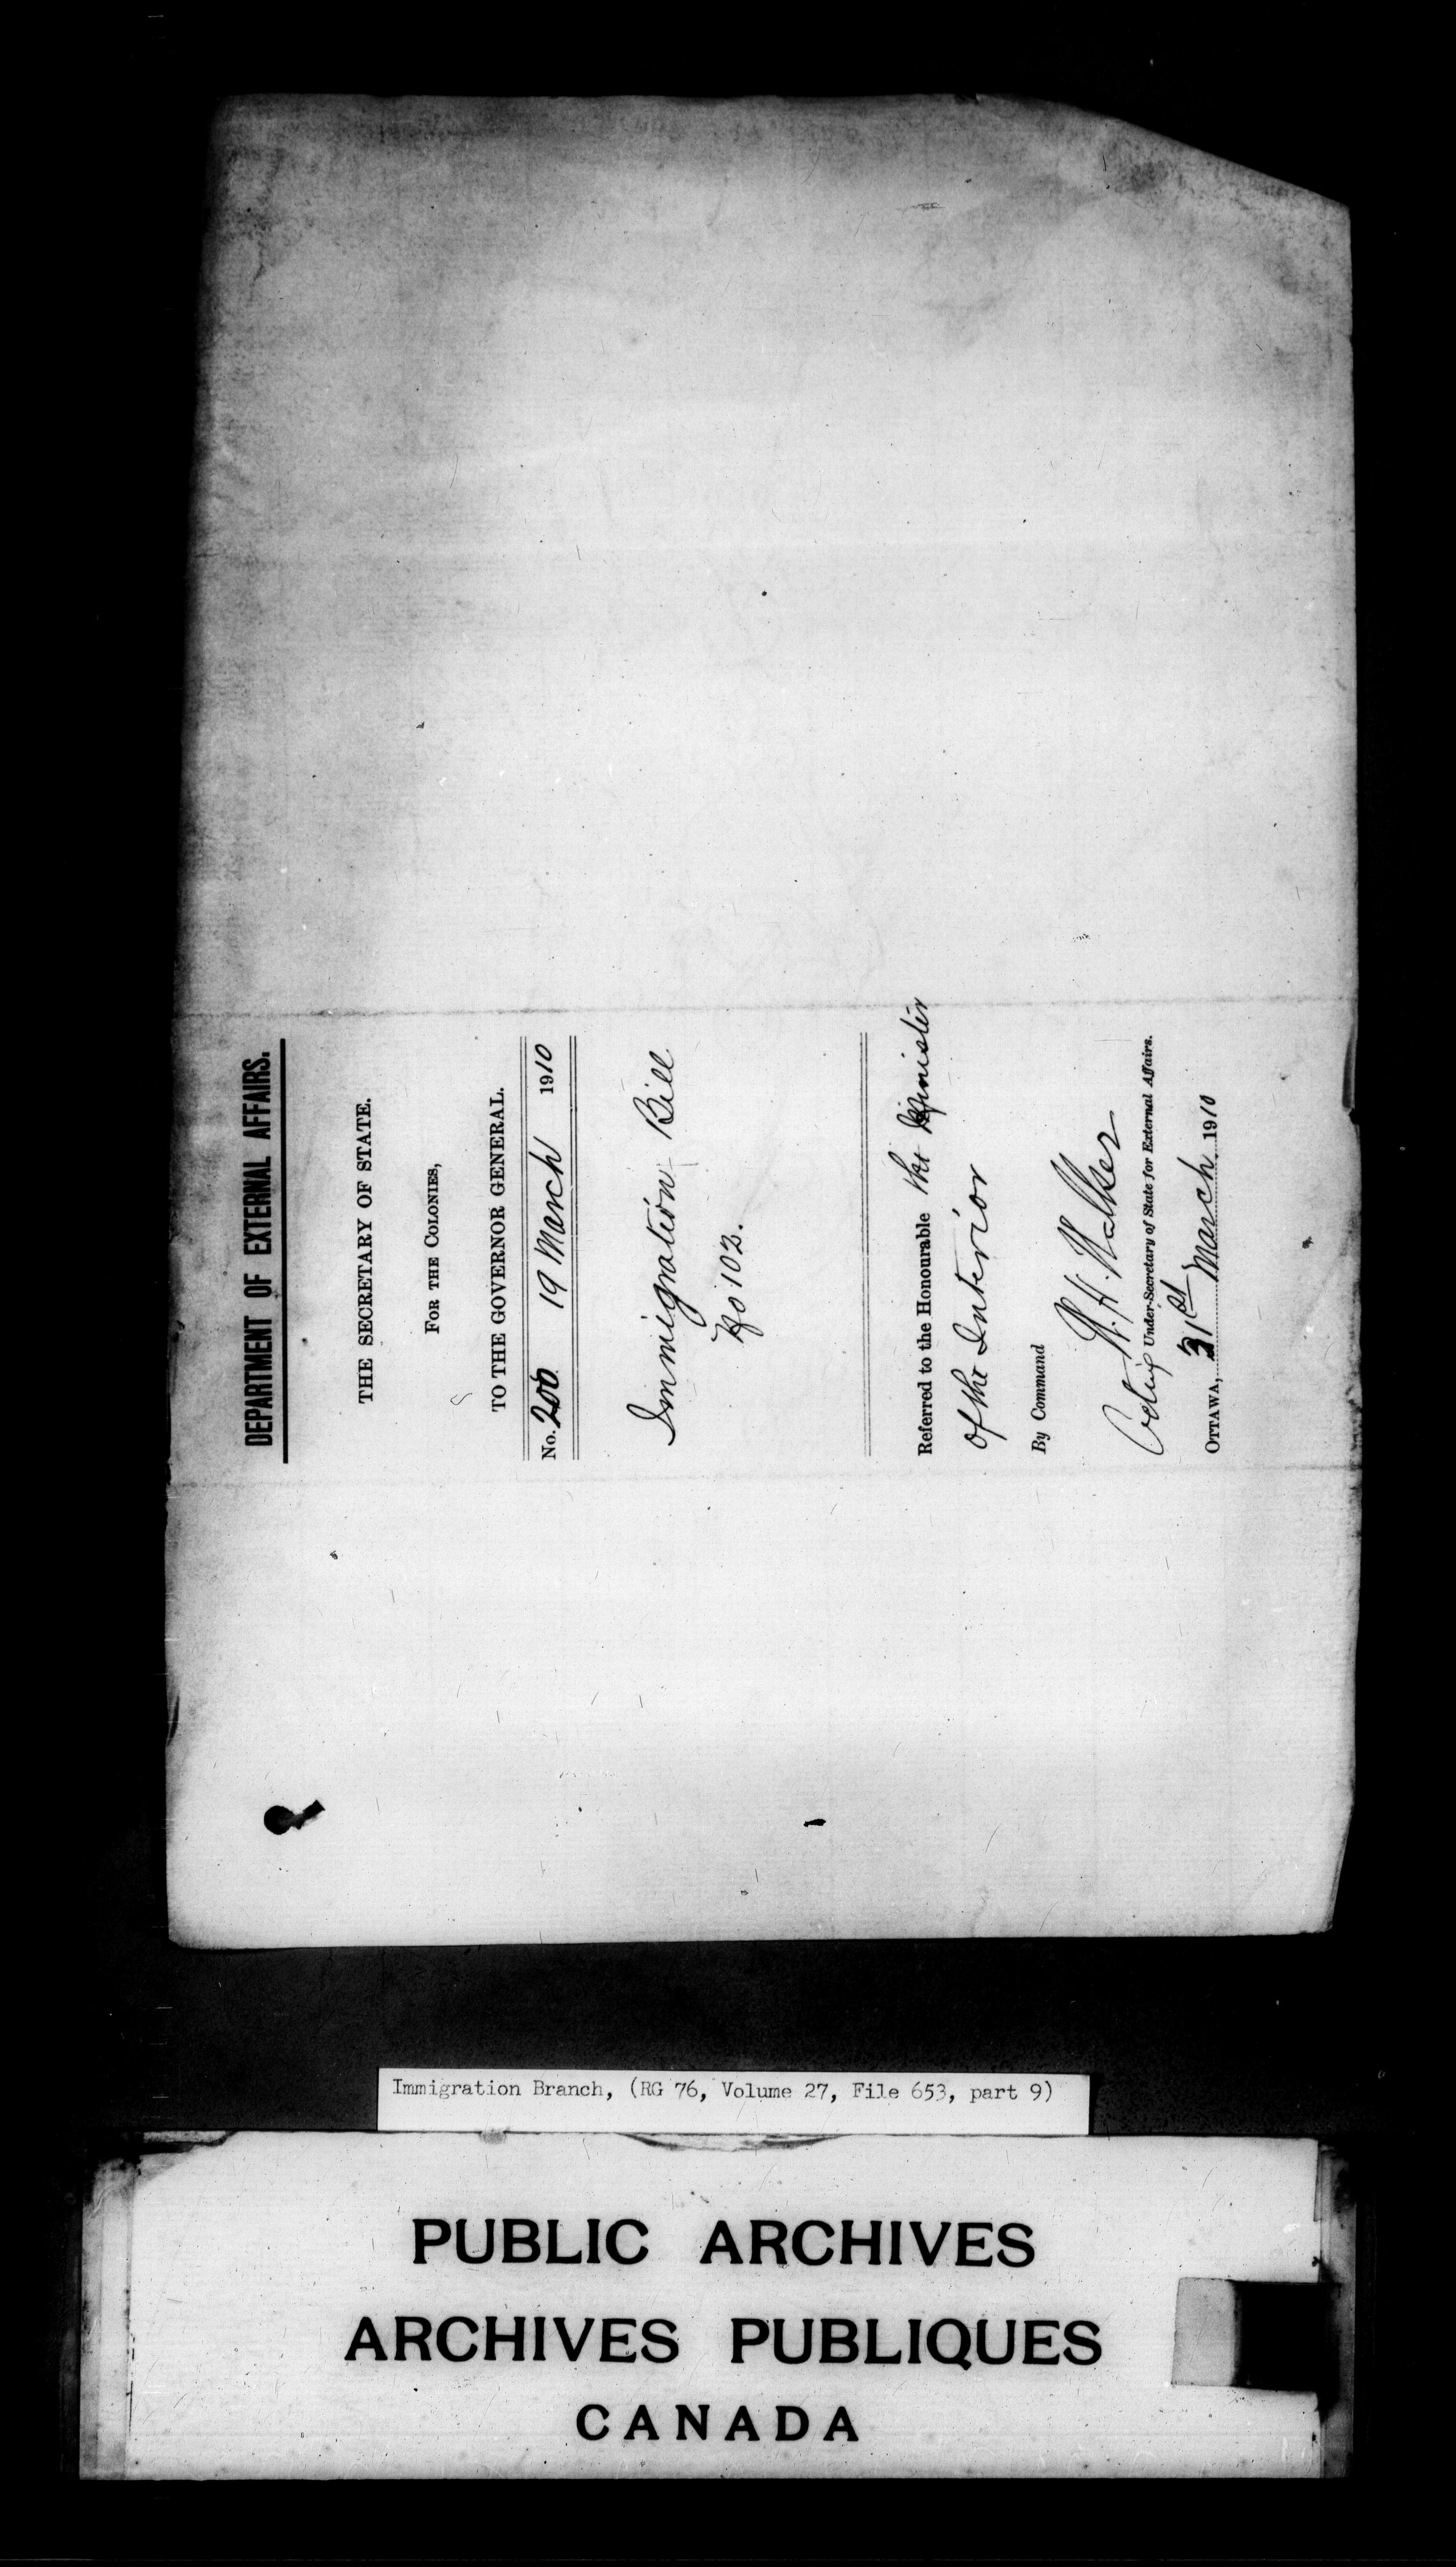 DEPARTMENT OF EXTERNAL AFFAIRS.
THE SECRETARY OF STATE.
FOR THE COLONIES,
TO THE GOVERNOR GENERAL.
No. 200 19 March 1910
Immigration Bill
No 102.
Referred to the Honourable the Minister
of the Interior
By Command
W. H. Walker
Acting Under-Secretary of State for External Affairs.
OTTAWA, 31st March 1910
Immigration Branch, (RG 76, Volume 27, File 653, part 9)
PUBLIC ARCHIVES
ARCHIVES PUBLIQUES
CANADA